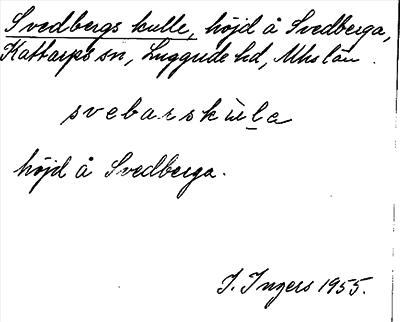 Svedbergs kulle, höjd å Svedberga,
Kattarps sn, Luggude hd, Mhs län.
svebarskùla
höjd å Svedberga.
I. Ingers 1955.